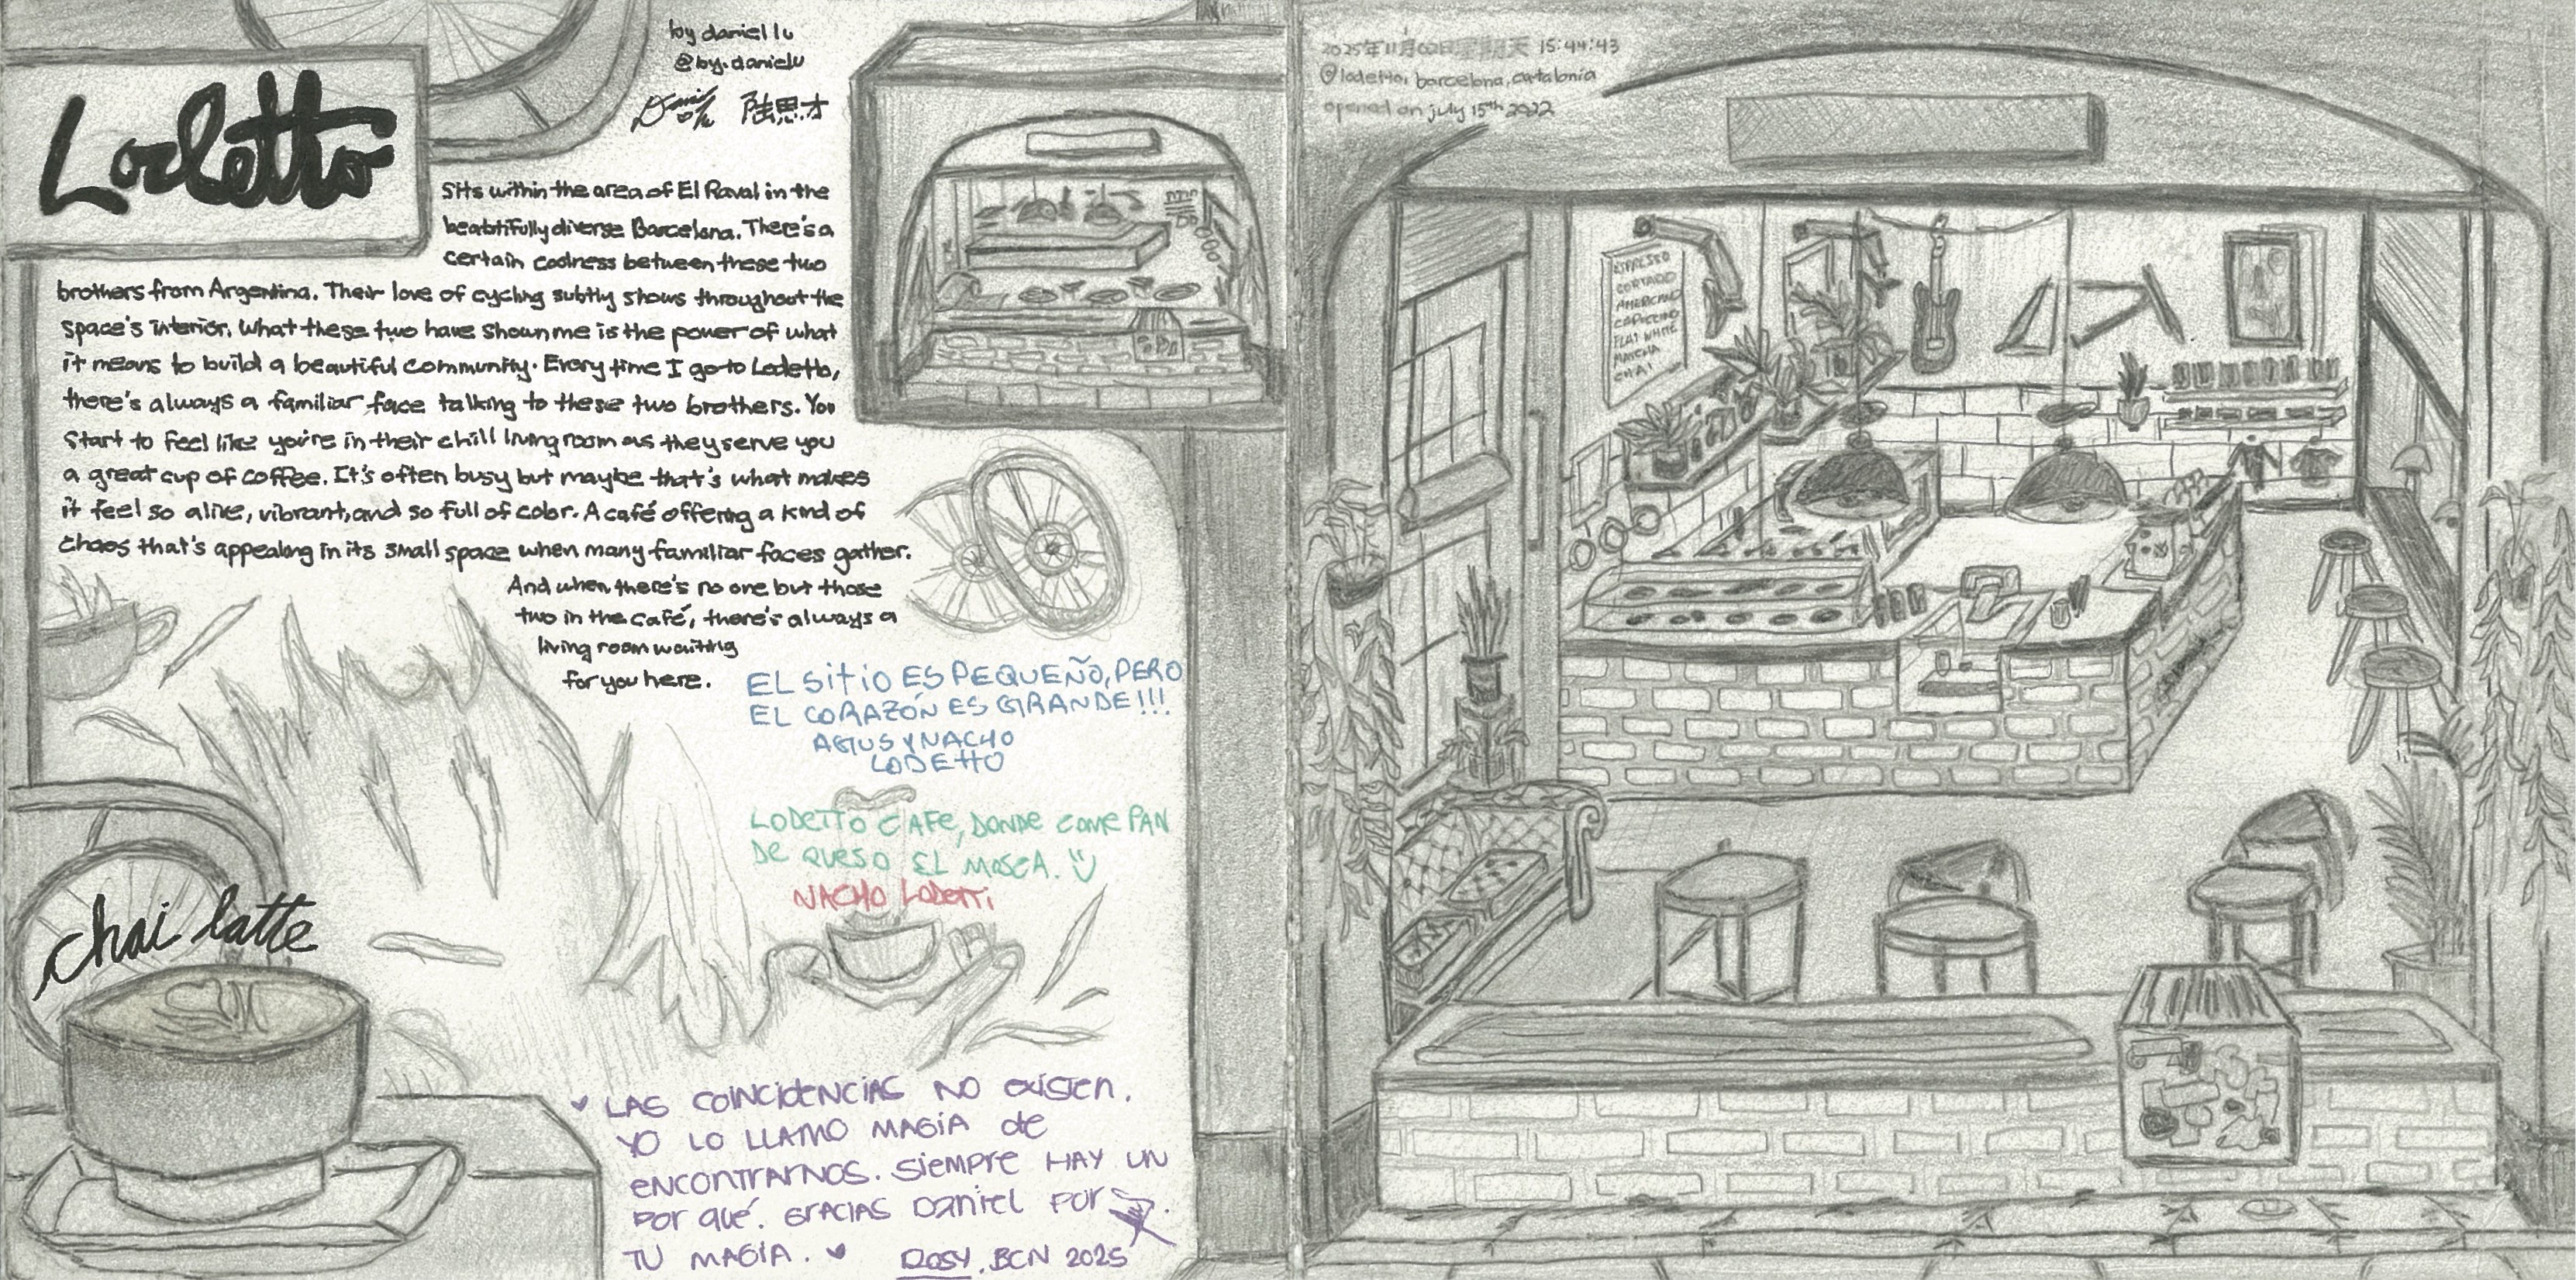 Lodetto
by daniel lu
@by.danielu
陆思才
Sits within the area of El Raval in the
beautifully diverse Barcelona. There's a
certain coolness between these two
brothers from Argentina. Their love of cycling subtly shows throughout the
space's interior. What these two have shown me is the power of what
it means to build a beautiful community. Every time I go to Lodetto,
there's always a familiar face talking to these two brothers. You
start to feel like you're in their chill living room as they serve you
a great cup of coffee. It's often busy but maybe that's what makes
it feel so alive, vibrant, and so full of color. A café offering a kind of
chaos that's appealing in its small space when many familiar faces gather.
And when there's no one but those
two in the café, there's always a
living room waiting
for you here.
EL SITIO ES PEQUEÑO, PERO
EL CORAZÓN ES GRANDE!!!
AGUS Y NACHO
LODETTO
LODETTO CAFE, DONDE COME PAN
DE QUESO EL MOSCA.
NACHO LODETTI
chai latte
LAS COINCIDENCIAS NO EXISTEN.
YO LO LLAMO MAGIA de
ENCONTRARNOS. SIEMPRE HAY UN
POR QUÉ. GRACIAS DANIEL POR
TU MAGIA.
ROSY. BCN 2025
2025年11月02日星期天 15:44:43
lodetto, barcelona, catalonia
opened on july 15th 2022
ESPRESSO
CORTADO
AMERICANO
CAPUCCINO
FLAT WHITE
MATCHA
CHAI